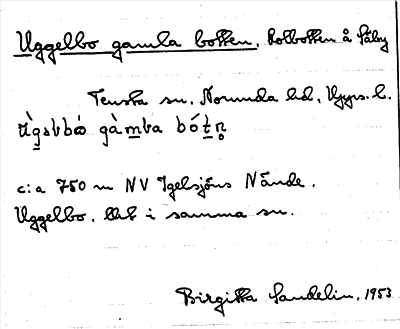 Uggelbo gamla botten, Kolbotten å Säby
Tensta sn, Norunda hd, Upps. l.
c:a 750 m NV Igelsjöns N ände.
Uggelbo, in samma sn.
Birgitta Sandelin, 1953